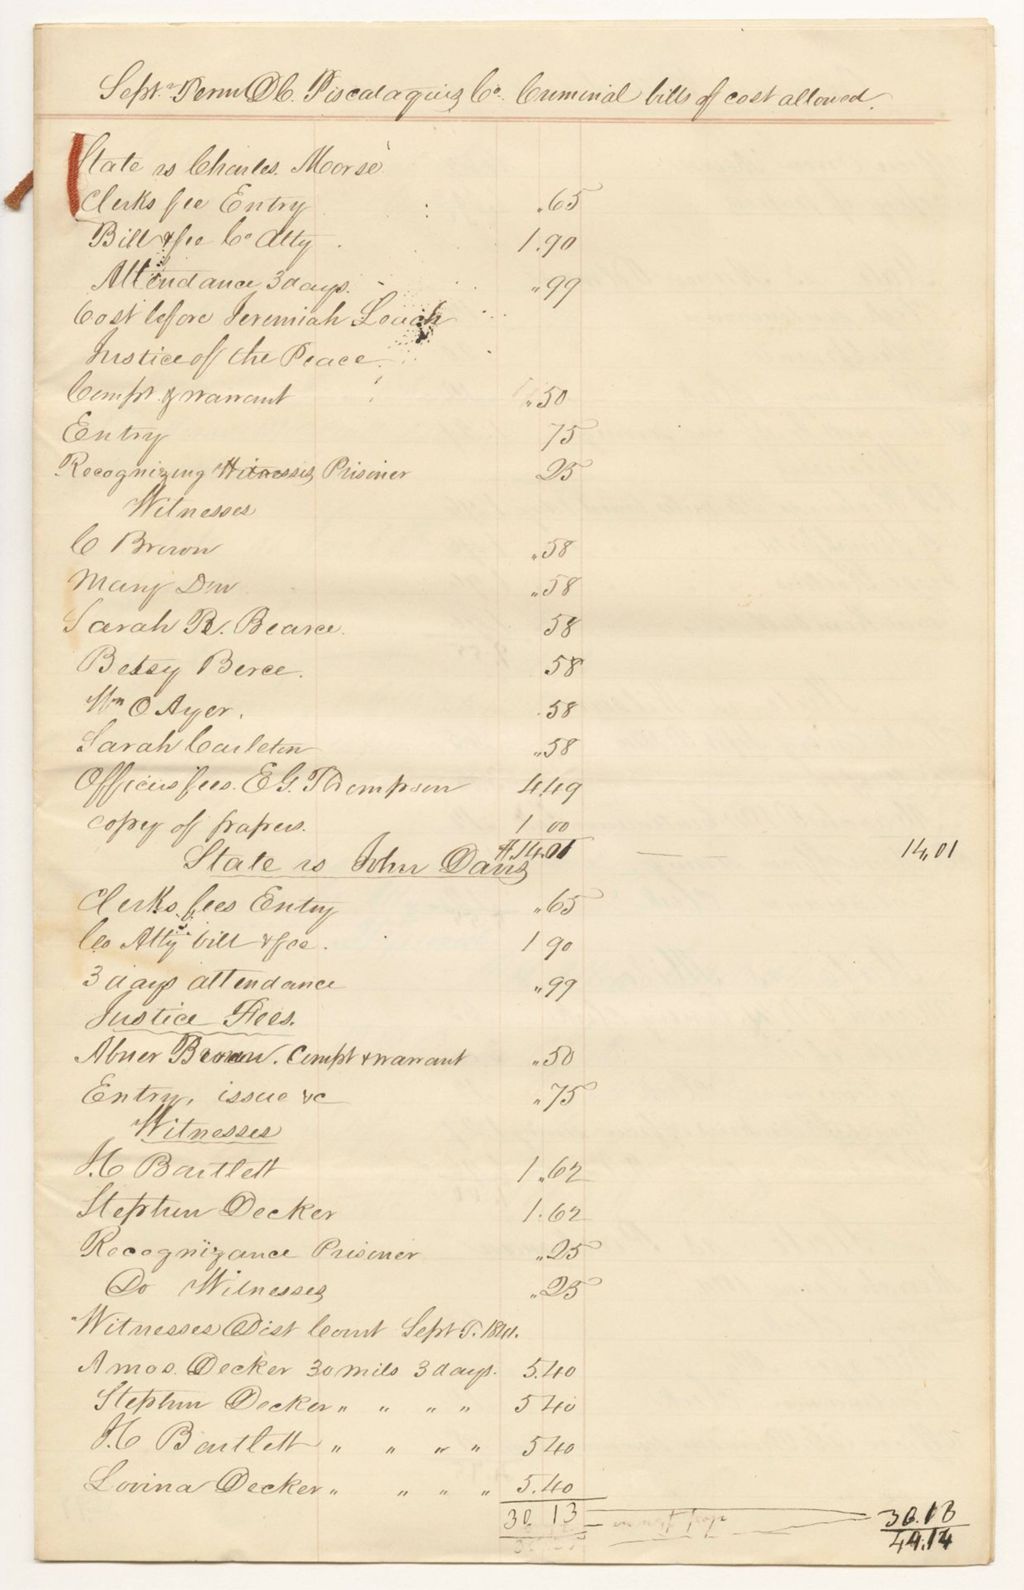 Sept. Term D C. Piscataquis Co. Criminal bills of cost allowed.
State vs Charles Morse
Clerks fee Entry .65
Bill & fee Co Atty 1.90
Attendance 3 days. "99
Cost before Jeremiah Leach
Justice of the Peace
Compt & warrant "50
Entry 75
Recognizing Witnesses Prisoner 25
Witnesses
C Brown "58
Mary Dow "58
Sarah B. Bearce. 58
Betsey Berce. 58
Wm O Ayer. .58
Sarah Carleton "58
Officers fees. E G. Thompson 4.49
Copy of papers. 1 00
$14.01 14,01
State vs John Davis
Clerks fees Entry "65
Co Atty bill & fee. 1 90
3 days attendance "99
Justice Fees.
Abner Brown. Compt & warrant "50
Entry, issue &c "75
Witnesses
H Bartlett 1.62
Stephen Decker 1.62
Recognizance Prisoner "25
Do Witnesses "25
Witnesses Dist Court Sept T. 1841.
Amos Decker 30 mils 3 days. 5.40
Stephen Decker " " " " 5 40
H Bartlett " " " " 5 40
Lovina Decker " " " " 5.40
30.13 on next page 30.13
44.14